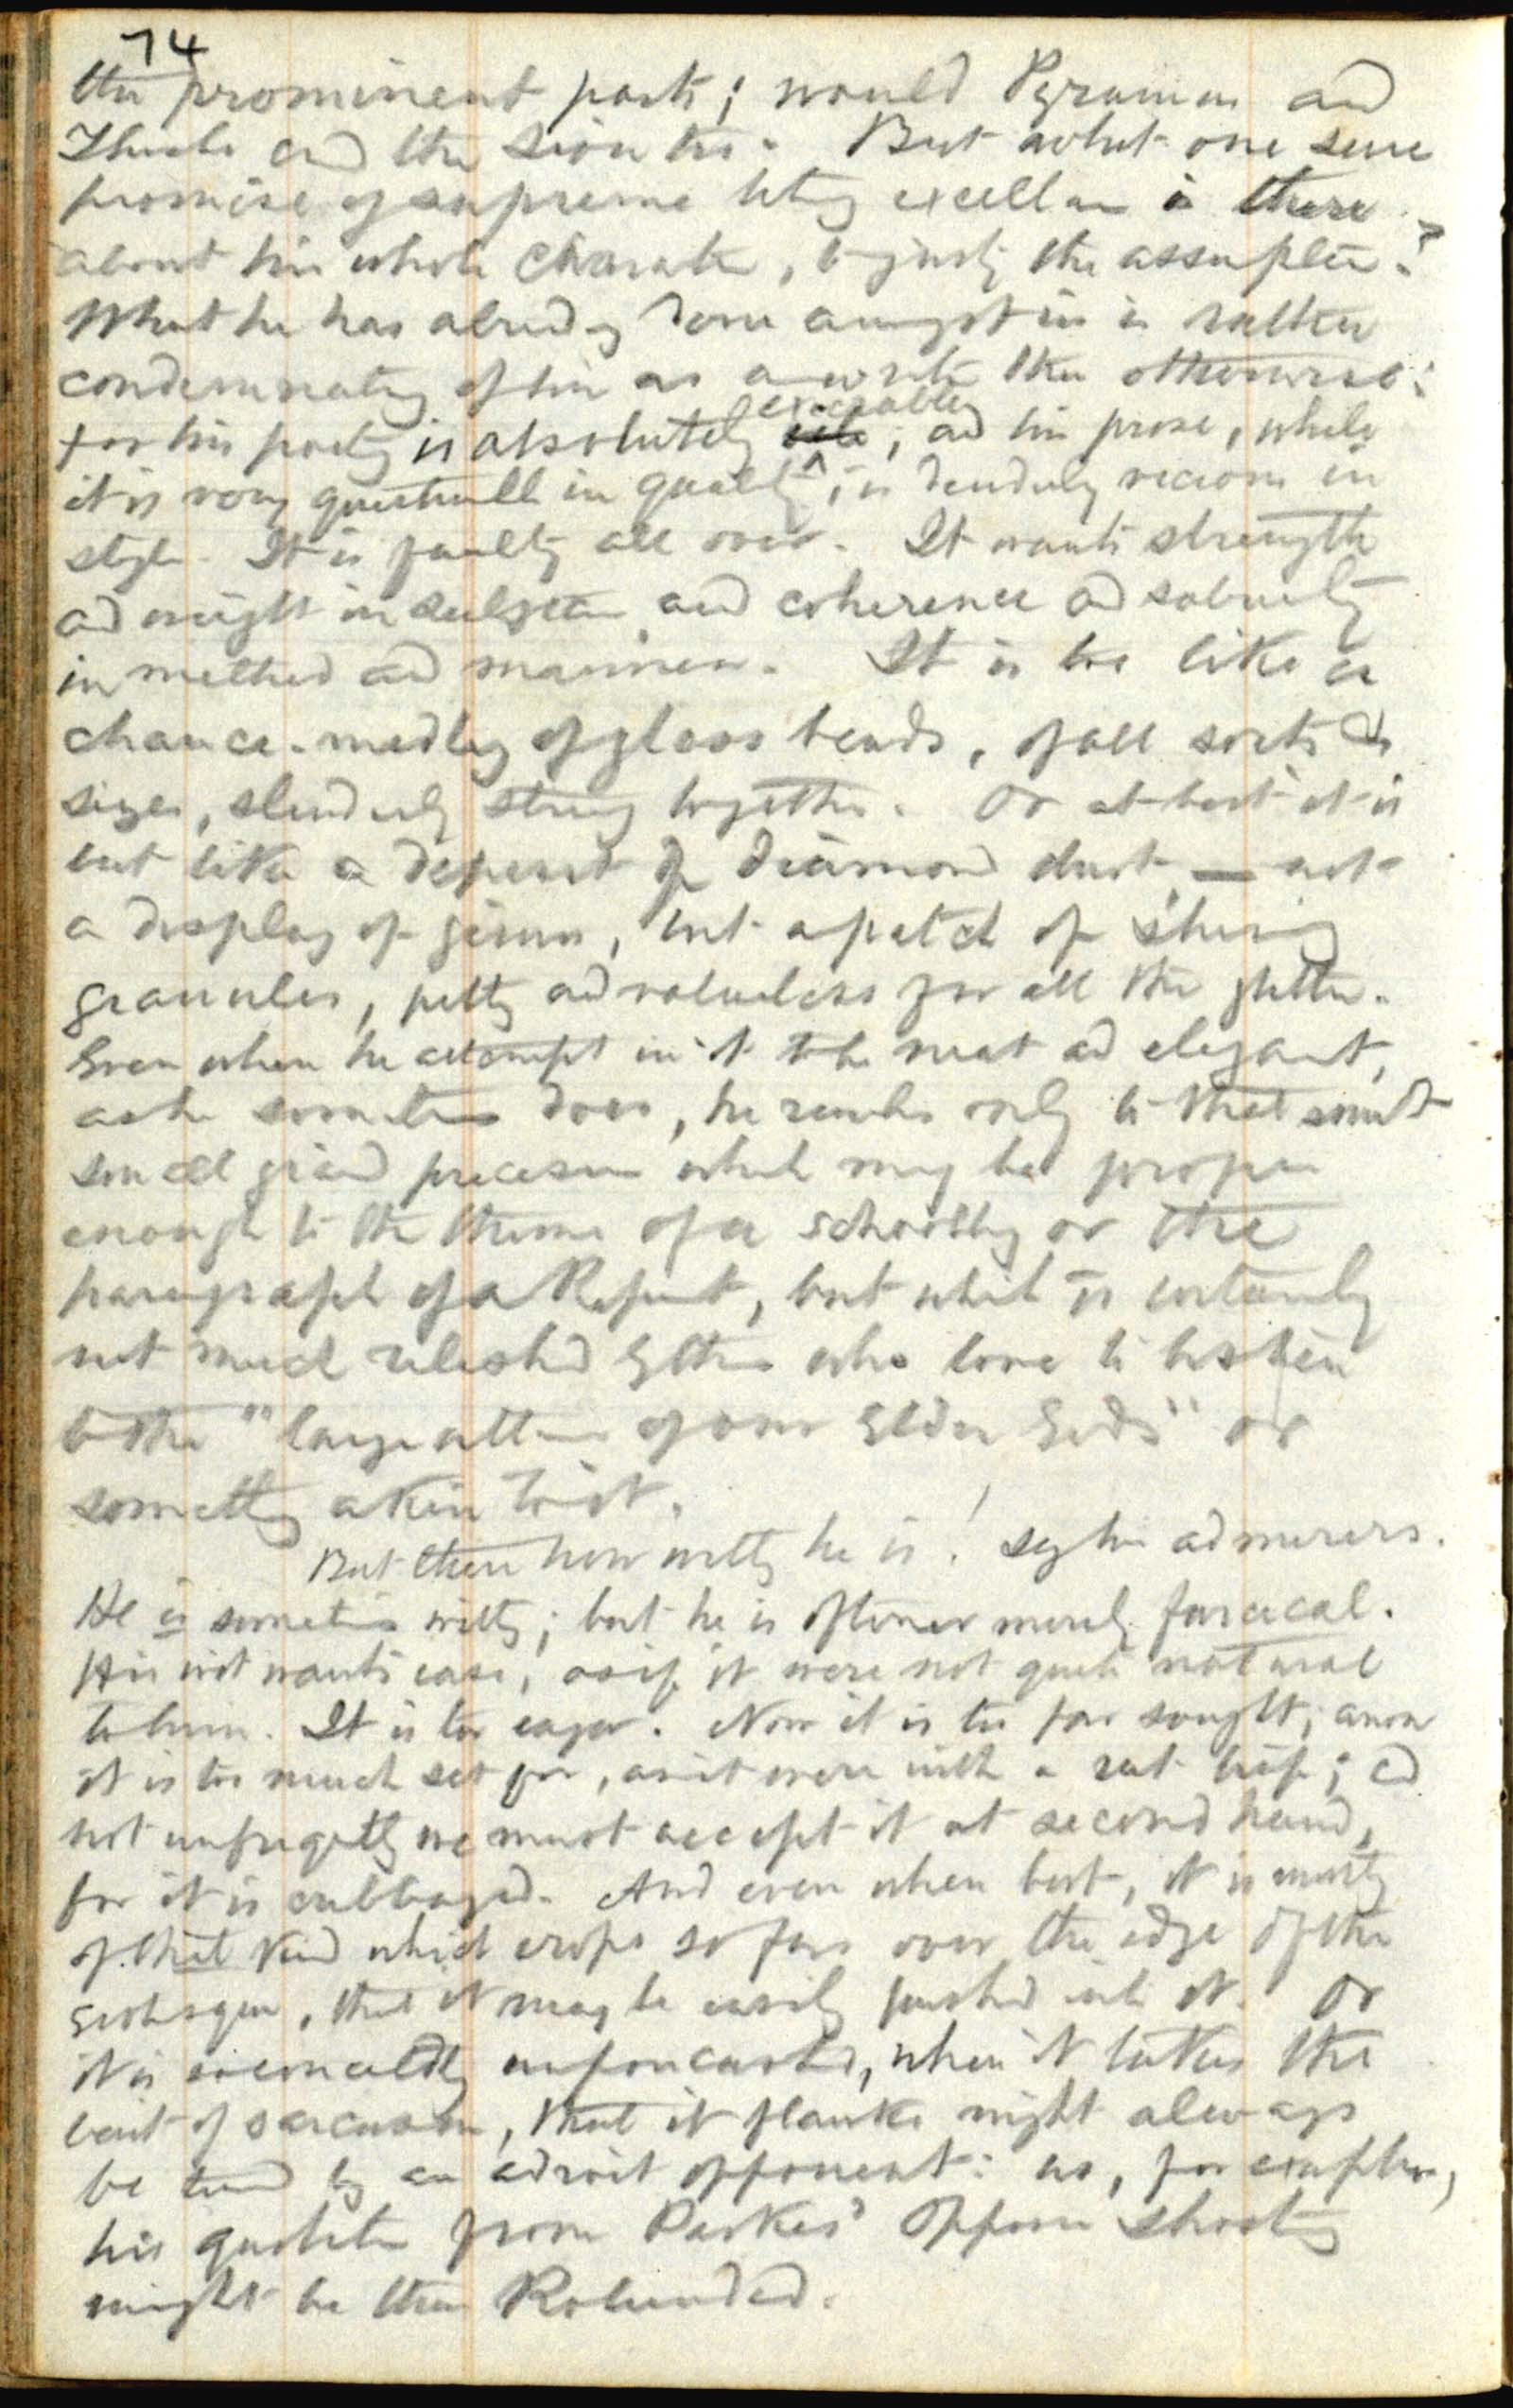 74
the prominent parts; would Pyramus and
Thisbe and the Lion too. But what one sure
promise of supreme literary excellence is there
about his whole character, to justify the assumption?
What he has already done amongst us is rather
condemnatory of him as a writer than otherwise:
for his poetry is absolutely execrable; and his prose, while
it is very in quality, is decidedly vicious in
style. It is faulty all over. It wants strength
and weight in substance and coherence and sobriety
in method and manner. It is too like a
chance-medley of glass beads, of all sorts &
sizes, slenderly strung together. Or at best it is
but like a deposit of diamond dust, — not
a display of gems, but a patch of shining
granules, petty and valueless for all the glitter.
Even when he attempts in it to be neat and elegant,
as he sometimes does, he reaches only to that
small precision which may be proper
enough to the theme of a schoolboy or the
paragraph of a Report, but which is certainly
not much relished by those who love to listen
to the "large utterance of our Elder Gods" or
something akin to it.
But then how witty he is! say his admirers.
He is sometimes witty; but he is oftener merely farcical.
His wit wants ease, as if it were not quite natural
to him. It is too eager. Now it is too far sought; anon
it is too much set for, as it were with a rat trap; and
not unfrequently we must accept it at second hand,
for it is cabbaged. And even when best, it is mostly
of that kind which crops so far over the edge of the
grotesque, that it may be easily pushed into it. Or
it is so, when it takes the
bent of sarcasm, that it flanks might always
be turned by an adroit opponent: as, for example,
his quotation from Parkes' Opposum Shooting
might be then Rolunded.